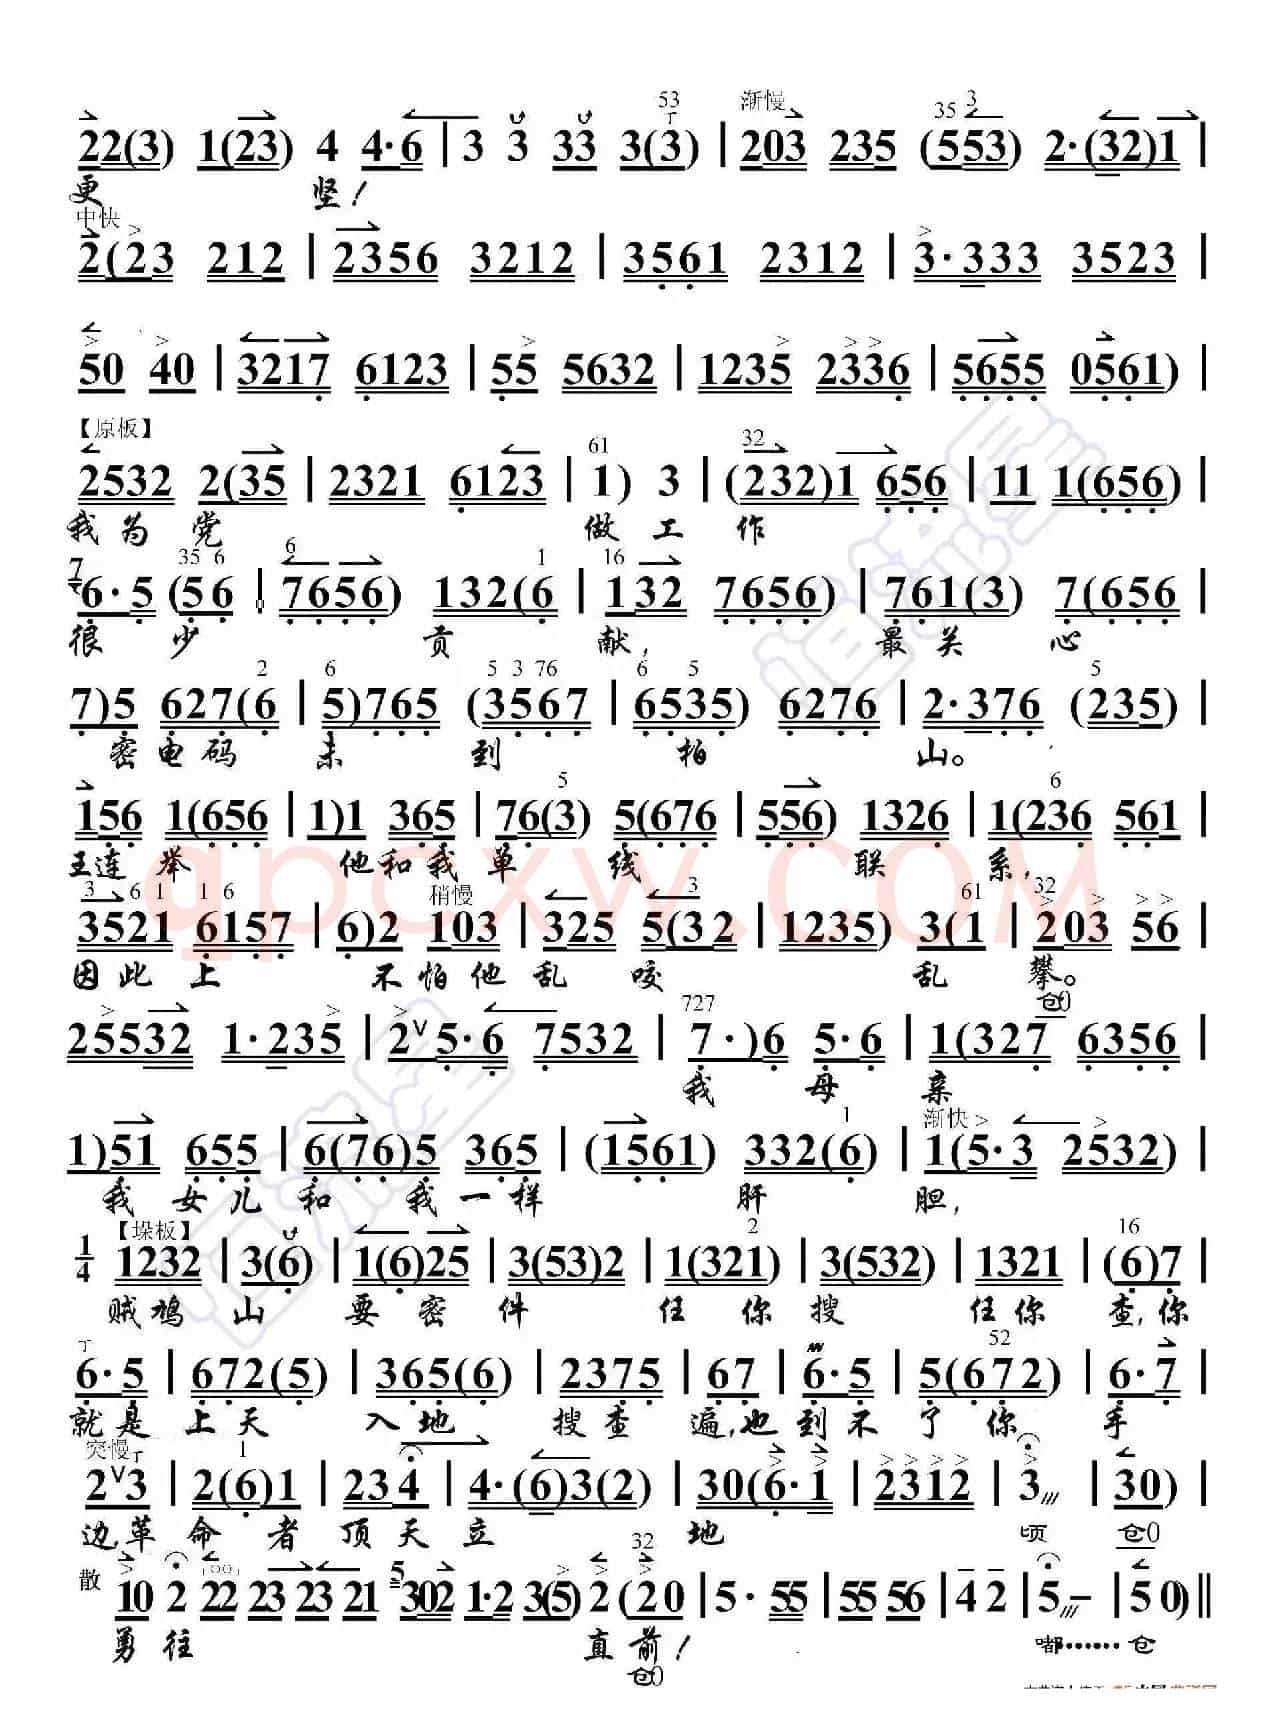 53 渐慢 35 3
22(3) 1(23) 4 4·6 | 3 3 33 3(3) | 203 235 (553) 2·(32)1 |
更 坚!
中快
2(23 212 | 2356 3212 | 3561 2312 | 3·333 3523 |
50 40 | 3217 6123 | 55 5632 | 1235 2336 | 5655 0561) |
【原板】 61 32
2532 2(35 | 2321 6123 | 1) 3 | (232)1 656 | 11 1(656) |
我为党 做工作
7 35 6 6 1 16
6·5 (56 | 7656) 132(6 | 132 7656) | 761(3) 7(656 |
很少 贡 献, 最关 心
2 6 5 3 76 6 5 5
7)5 627(6 | 5)765 (3567 | 6535) 6276 | 2·376 (235) |
密电码 未 到 柏 山。
5 6
156 1(656 | 1)1 365 | 76(3) 5(676 | 556) 1326 | 1(236 561 |
王连举 他和我单线 联 系,
3 6 1 1 6 稍慢 3 61 32
3521 6157 | 6)2 103 | 325 5(32 | 1235) 3(1 | 203 56 |
因此上 不怕他乱 咬 乱 攀。
仓0
727
25532 1·235 | 2∨5·6 7532 | 7·)6 5·6 | 1(327 6356 |
我 母 亲
1 渐快
1)51 655 | 6(76)5 365 | (1561) 332(6) | 1(5·3 2532) |
我女儿和 我一样 肝 胆,
【垛板】 2 16
1/4 1232 | 3(6) | 1(6)25 | 3(53)2 | 1(321) | 3(532) | 1321 | (6)7 |
贼鸠 山 要密件 任你搜 任你 查,你
丁 52
6·5 | 672(5) | 365(6) | 2375 | 67 | 6·5 | 5(672) | 6·7 |
就是上天 入地 搜查 遍,也到不了你 手
突慢 丁 1
2∨3 | 2(6)1 | 234 | 4·(6)3(2) | 30(6·1 | 2312 | 3 | 30) |
边,革命者顶天立 地 顷 仓0
散 5 32
10 2 22 23 23 21 302 1·2 3(5) 2 (20 | 5·55 | 55 55 | 4 2 | 5 – | 50) ‖
勇往 直前! 嘟…… 仓
仓0
qpcxw.COM